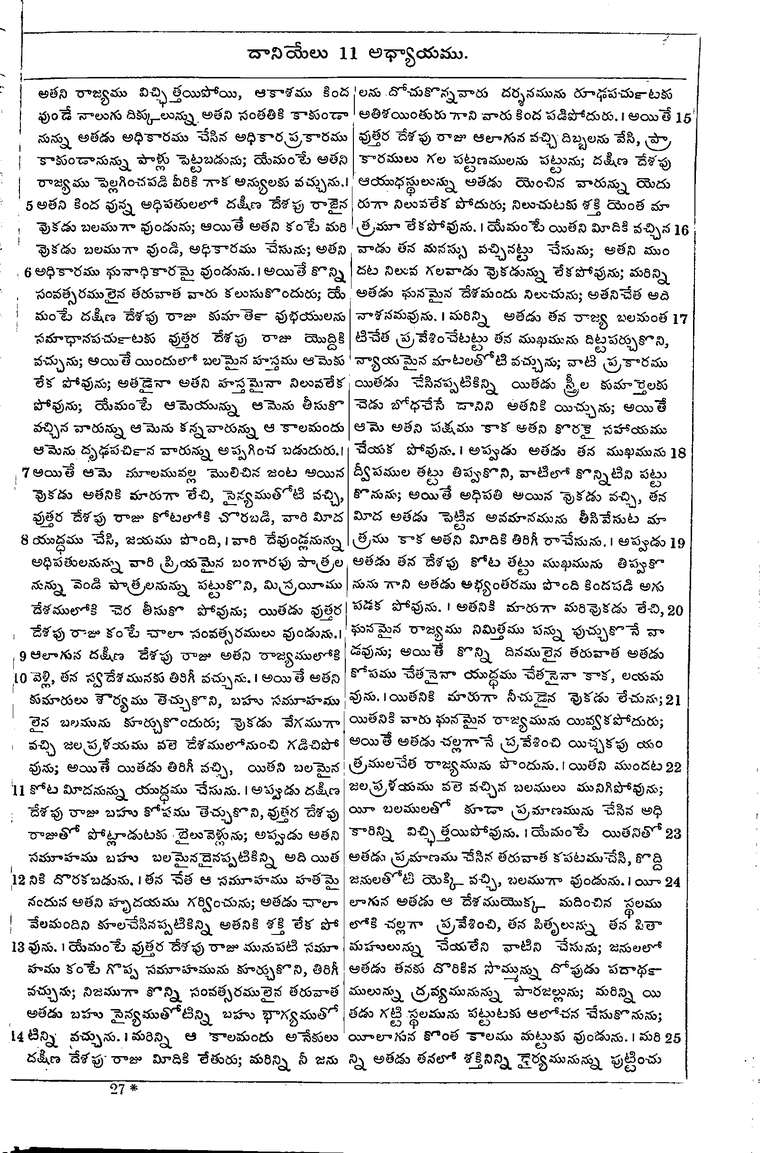 దానియేలు 11 అధ్యాయము.
అతని రాజ్యము విచ్ఛిత్తయిపోయి, ఆకాశము కింద
వుండే నాలుగు దిక్కులున్ను అతని సంతతికి కాకుండా
నున్ను అతడు అధికారము చేసిన అధికార ప్రకారము
కాకుండానున్ను పాళ్లు పెట్టబడును; యేమంటే అతని
రాజ్యము పెల్లగించపడి వీరికి గాక అన్యులకు వచ్చును.।
5 అతని కింద వున్న అధిపతులలో దక్షిణ దేశపు రాజైన
వొకడు బలముగా వుండును; అయితే అతని కంటే మరి
వొకడు బలముగా వుండి, అధికారము చేసును; అతని
6 అధికారము ఘనాధికారమై వుండును. । అయితే కొన్ని
సంవత్సరములైన తరువాత వారు కలుసుకొందురు; యే
మంటే దక్షిణ దేశపు రాజు కుమార్తె వుభయులను
సమాధానపచుటకు వుత్తర దేశపు రాజు యొద్దికి
వచ్చును; అయితే యిందులో బలమైన హస్తము ఆమెకు
లేక పోవును; అతడైనా అతని హస్తమైనా నిలువలేక
పోవును; యేమంటే ఆమెయున్ను ఆమెను తీసుకొ
వచ్చిన వారున్ను ఆమెను కన్నవారున్ను ఆ కాలమందు
ఆమెను దృఢపచిన వారున్ను అప్పగించ బడుదురు.।
7 అయితే ఆమె మూలమువల్ల మొలిచిన జంట అయిన
వొకడు అతనికి మారుగా లేచి, సైన్యముతోటి వచ్చి,
వుత్తర దేశపు రాజు కోటలోకి చొరబడి, వారి మీద
8 యుద్ధము చేసి, జయము పొంది, । వారి దేవుండ్లనున్ను
అధిపతులనున్ను వారి ప్రియమైన బంగారపు పాత్రల
నున్ను వెండి పాత్రలనున్ను పట్టుకొని, మిస్రయీము
దేశములోకి చెర తీసుకొ పోవును; యితడు వుత్తర
దేశపు రాజు కంటే చాలా సంవత్సరములు వుండును.।
9 ఆలాగున దక్షిణ దేశపు రాజు అతని రాజ్యములోకి
10 వెళ్లి, తన స్వదేశమునకు తిరిగీ వచ్చును. । అయితే అతని
కుమారులు శౌర్యము తెచ్చుకొని, బహు సమూహము
లైన బలమును కూర్చుకొందురు; వొకడు వేగముగా
వచ్చి జలప్రళయము వలె దేశములోనుంచి గడిచిపో
వును; అయితే యితడు తిరిగీ వచ్చి, యితని బలమైన
11 కోట మీదనున్ను యుద్ధము చేసును. । అప్పుడు దక్షిణ
దేశపు రాజు బహు కోపము తెచ్చుకొని, వుత్తర దేశపు
రాజుతో పోట్లాడుటకు బైలువెళ్లును; అప్పుడు అతని
సమూహము బహు బలమైనదైనప్పటికిన్ని అది యిత
12 నికి దొరకబడును. । తన చేత ఆ సమూహము హతమై
నందున అతని హృదయము గర్వించును; అతడు చాలా
వేలమందిని కూలచేసినప్పటికిన్ని అతనికి శక్తి లేక పో
13 వును. । యేమంటే వుత్తర దేశపు రాజు మునుపటి సమూ
హము కంటే గొప్ప సమూహమును కూర్చుకొని, తిరిగీ
వచ్చును; నిజముగా కొన్ని సంవత్సరములైన తరువాత
అతడు బహు సైన్యముతోటిన్ని బహు భాగ్యముతో
14 టిన్ని వచ్చును. । మరిన్ని ఆ కాలమందు అనేకులు
దక్షిణ దేశపు రాజు మీదికి లేతురు; మరిన్ని నీ జను
లను దోచుకొన్నవారు దర్శనమును రూఢపచుటకు
అతిశయింతురు గాని వారు కింద పడిపోదురు. । అయితే 15
వుత్తర దేశపు రాజు ఆలాగున వచ్చి దిబ్బలను వేసి, ప్రా
కారములు గల పట్టణములను పట్టును; దక్షిణ దేశపు
ఆయుధస్థులున్ను అతడు యెంచిన వారున్ను యెదు
రుగా నిలువలేక పోదురు; నిలుచుటకు శక్తి యెంత మా
త్రమూ లేకపోవును. । యేమంటే యితని మీదికి వచ్చిన 16
వాడు తన మనస్సు వచ్చినట్టు చేసును; అతని ముం
దట నిలువ గలవాడు వొకడున్ను లేకపోవును; మరిన్ని
అతడు ఘనమైన దేశమందు నిలుచును; అతనిచేత అది
నాశనమవును. । మరిన్ని అతడు తన రాజ్య బలమంత 17
టిచేత ప్రవేశించేటట్టు తన ముఖమును దిట్టపర్చుకొని,
న్యాయమైన మాటలతోటి వచ్చును; వాటి ప్రకారము
యితడు చేసినప్పటికిన్ని యితడు స్త్రీల కుమార్తెలకు
చెడు బోధచేసే దానిని అతనికి యిచ్చును; అయితే
ఆమె అతని పక్షము కాక అతని కొరకై సహాయము
చేయక పోవును. । అప్పుడు అతడు తన ముఖమును 18
ద్వీపముల తట్టు తిప్పుకొని, వాటిలో కొన్నిటిని పట్టు
కొనును; అయితే అధిపతి అయిన వొకడు వచ్చి, తన
మీద అతడు పెట్టిన అవమానమును తీసివేసుట మా
త్రము కాక అతని మీదికి తిరిగీ రాచేసును. । అప్పుడు 19
అతడు తన దేశపు కోట తట్టు ముఖమును తిప్పుకొ
నును గాని అతడు అభ్యంతరము పొంది కిందపడి అగు
పడక పోవును. । అతనికి మారుగా మరివొకడు లేచి, 20
ఘనమైన రాజ్యము నిమిత్తము పన్ను పుచ్చుకొనే వా
డవును; అయితే కొన్ని దినములైన తరువాత అతడు
కోపము చేతనైనా యుద్ధము చేతనైనా కాక, లయమ
వును. । యితనికి మారుగా నీచుడైన వొకడు లేచును; 21
యితనికి వారు ఘనమైన రాజ్యమును యివ్వకపోదురు;
అయితే అతడు చల్లగానే ప్రవేశించి యిచ్చకపు యం
త్రములచేత రాజ్యమును పొందును. । యితని ముందట 22
జలప్రళయము వలె వచ్చిన బలములు మునిగిపోవును;
యీ బలములతో కూడా ప్రమాణమును చేసిన అధి
కారిన్ని విచ్ఛిత్తయిపోవును. । యేమంటే యితనితో 23
అతడు ప్రమాణము చేసిన తరువాత కపటముచేసి, కొద్ది
జనులతోటి యెక్కి వచ్చి, బలముగా వుండును. । యీ 24
లాగున అతడు ఆ దేశముయొక్క మదించిన స్థలము
లోకి చల్లగా ప్రవేశించి, తన పితృలున్ను తన పితా
మహులున్ను చేయలేని వాటిని చేసును; జనులలో
అతడు తనకు దొరికిన సొమ్మున్ను దోపుడు పదార్థ
ములున్ను ద్రవ్యమునున్ను పారజల్లును; మరిన్ని యి
తడు గట్టి స్థలమును పట్టుటకు ఆలోచన చేసుకొనును;
యీలాగున కొంత కాలము మట్టుకు వుండును. । మరి 25
న్ని అతడు తనలో శక్తినిన్ని ధైర్యమునున్ను పుట్టించు
27 *